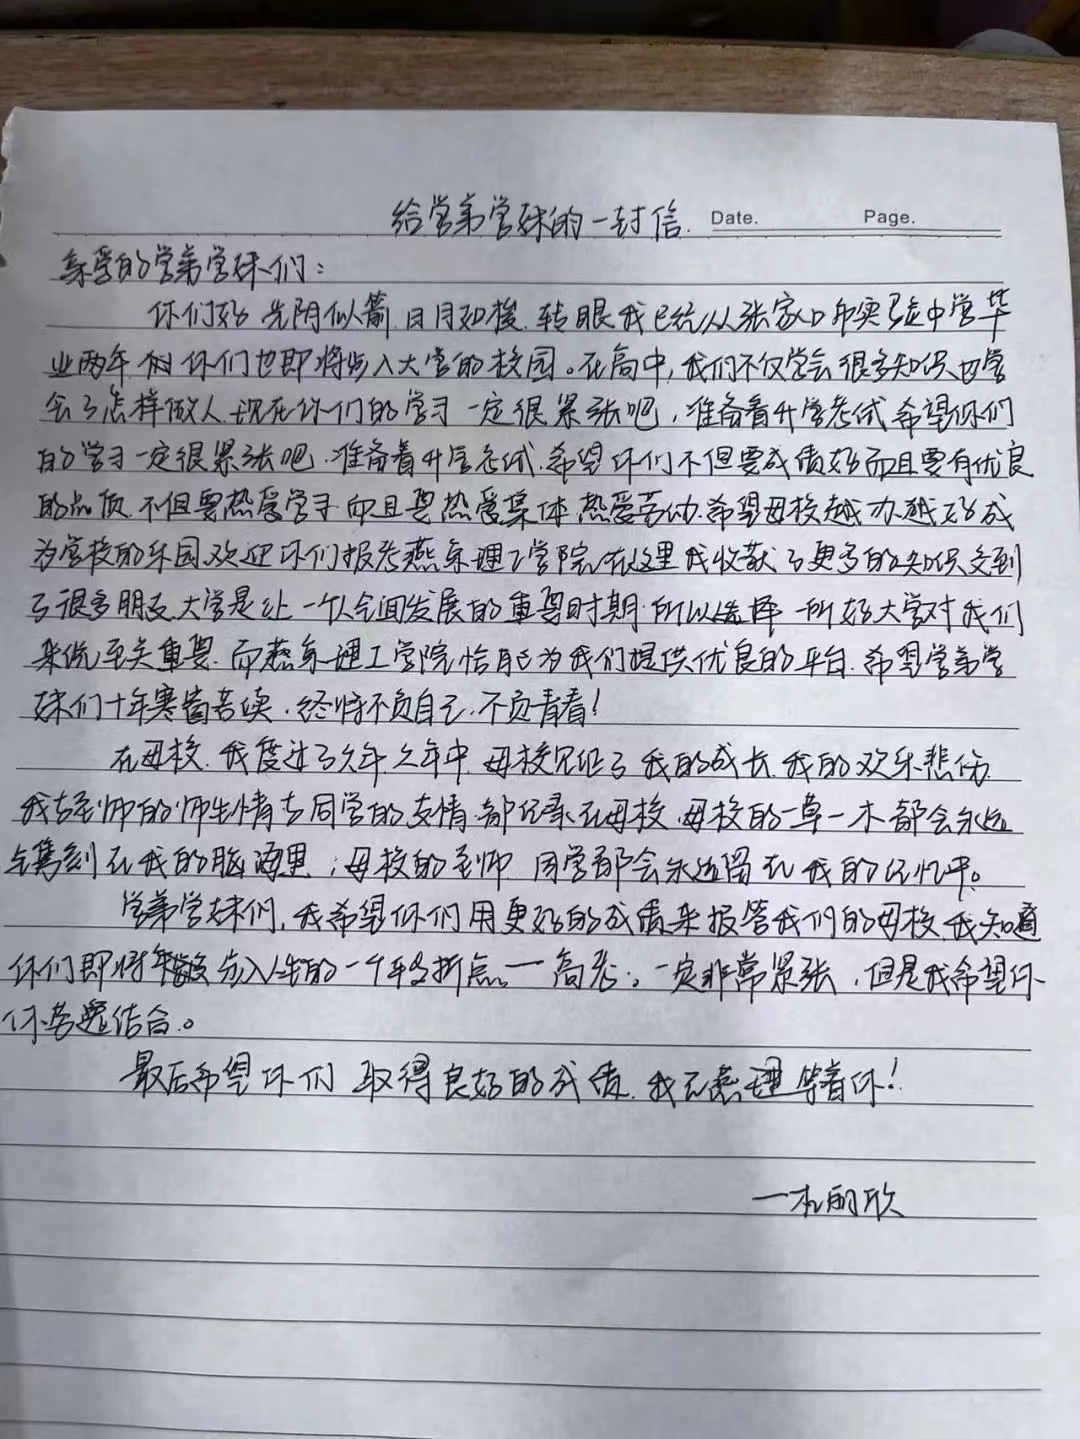 给学弟学妹的一封信. Date. Page.
亲爱的学弟学妹们：
你们好 光阴似箭.日月如梭.转眼我已经从张家口市实验中学毕
业两年 你们也即将步入大学的校园。在高中,我们不仅学会很多知识也学
会了怎样做人.现在你们的学习一定很紧张吧,准备着升学考试 希望你们
的学习一定很紧张吧.准备着升学考试.希望你们不但要成绩好而且要有优良
的品质.不但要热爱学习 而且要热爱集体 热爱劳动.希望母校越办越好成
为学校的乐园.欢迎你们报考燕京理工学院.在这里我收获了更多的知识交到
了很多朋友.大学是让一个人全面发展的重要时期.所以选择一所好大学对我们
来说至关重要.而燕京理工学院恰能为我们提供优良的平台.希望学弟学
妹们十年寒窗苦读.终将不负自己.不负青春!
在母校.我度过了六年.六年中.母校见证了我的成长.我的欢乐悲伤
我与老师的师生情与同学的友情.都记录在母校.母校的一草一木都会永远
镌刻在我的脑海里;母校的老师 同学都会永远留在我的记忆中。
学弟学妹们,我希望你们用更好的成绩来报答我们的母校.我知道
你们即将步入人生的一个转折点—高考。一定非常紧张,但是我希望你
们劳逸结合。
最后希望你们取得良好的成绩.我在燕理等着你!
—丽欣